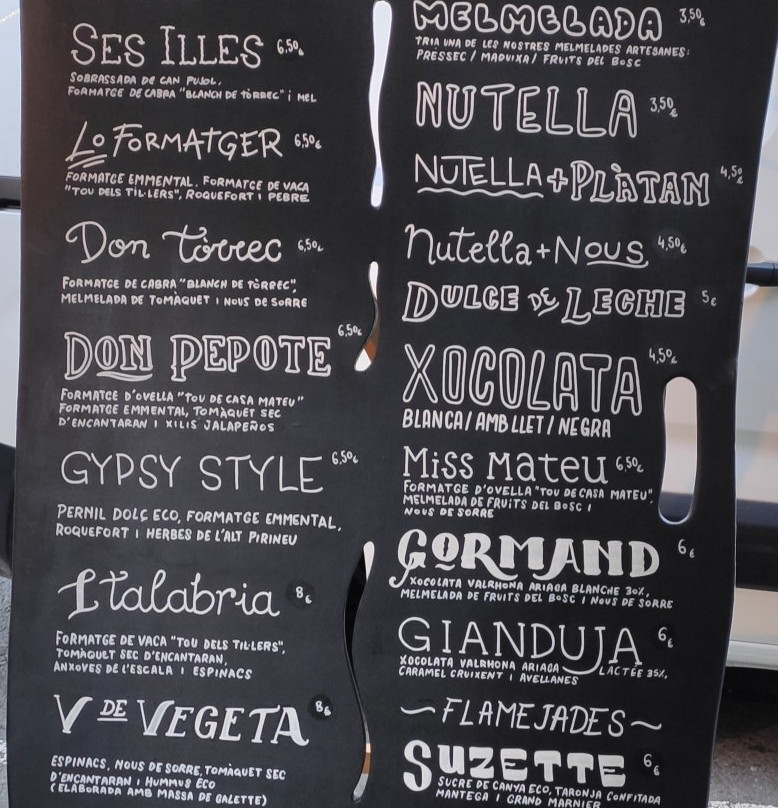 SES ILLES 6,50€
SOBRASSADA DE CAN PUJOL,
FORMATGE DE CABRA "BLANCH DE TÒRREC" i MEL
Lo FORMATGER 6,50€
FORMATGE EMMENTAL, FORMATGE DE VACA
"TOU DELS TIL·LERS", ROQUEFORT I PEBRE
Don tòrrec 6,50€
FORMATGE DE CABRA "BLANCH DE TÒRREC",
MELMELADA DE TOMÀQUET I NOUS DE SORRE
DON PEPOTE 6,50€
FORMATGE D'OVELLA "TOU DE CASA MATEU"
FORMATGE EMMENTAL, TOMÀQUET SEC
D'ENCANTARAN I XILIS JALAPEÑOS
GYPSY STYLE 6,50€
PERNIL DOLÇ ECO, FORMATGE EMMENTAL,
ROQUEFORT I HERBES DE L'ALT PIRINEU
Italabria 8€
FORMATGE DE VACA "TOU DELS TIL·LERS",
TOMÀQUET SEC D'ENCANTARAN,
ANXOVES DE L'ESCALA I ESPINACS
V DE VEGETA 8€
ESPINACS, NOUS DE SORRE, TOMÀQUET SEC
D'ENCANTARAN I HUMMUS ECO
(ELABORADA AMB MASSA DE GALETTE)
MELMELADA 3,50€
TRIA UNA DE LES NOSTRES MELMELADES ARTESANES:
PRESSEC / MADUIXA / FRUITS DEL BOSC
NUTELLA 3,50€
NUTELLA + PLÀTAN 4,50€
Nutella + Nous 4,50€
DULCE DE LECHE 5€
XOCOLATA 4,50€
BLANCA / AMB LLET / NEGRA
Miss Mateu 6,50€
FORMATGE D'OVELLA "TOU DE CASA MATEU",
MELMELADA DE FRUITS DEL BOSC I
NOUS DE SORRE
GORMAND 6€
XOCOLATA VALRHONA ARIAGA BLANCHE 30%,
MELMELADA DE FRUITS DEL BOSC I NOUS DE SORRE
GIANDUJA 6€
XOCOLATA VALRHONA ARIAGA LACTÉE 35%,
CARAMEL CRUIXENT I AVELLANES
~FLAMEJADES~
SUZETTE 6€
SUCRE DE CANYA ECO, TARONJA CONFITADA
MANTEGA I GRAND MARNIER